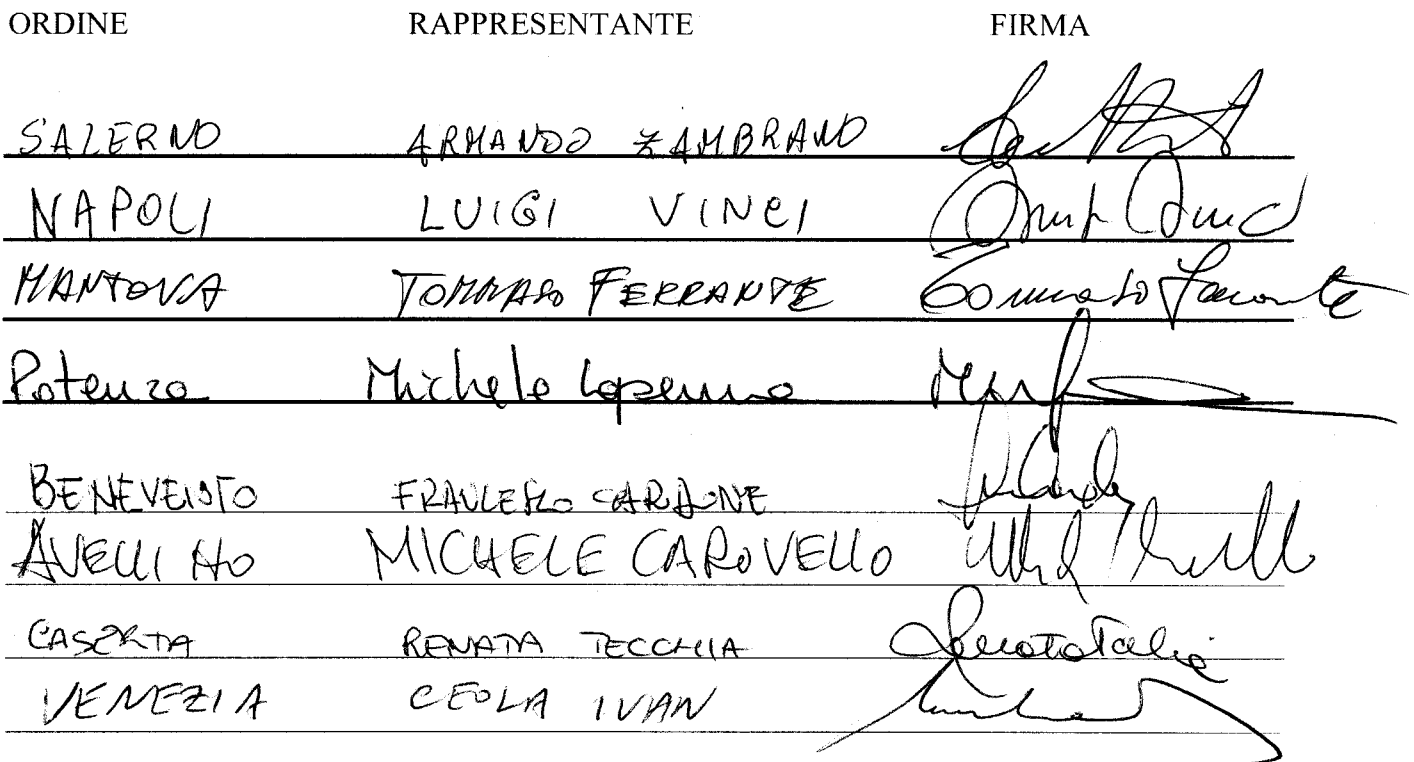 ORDINE RAPPRESENTANTE FIRMA
SALERNO ARMANDO ZAMBRANO
NAPOLI LUIGI VINCI
MANTOVA TOMMASO FERRANTE Tommaso Ferrante
Potenza Michele Lapenna
BENEVENTO FRANCESCO CARDONE
AVELLINO MICHELE CAROVELLO
CASERTA RENATA TECCHIA
VENEZIA CEOLA IVAN